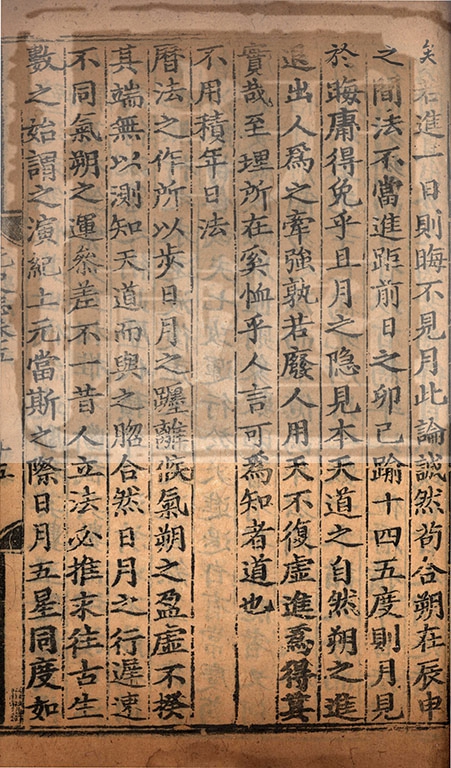 矣若進一日則晦不見月此論誠然苟合朔在辰申
之間法不當進距前日之卯已踰十四五度則月見
於晦庸得免乎且月之隐見本天道之自然朔之進
退出人爲之牽強孰若廢人用天不復虛進爲得其
實哉至理所在奚恤乎人言可爲知者道也
不用積年日法
曆法之作所以步日月之躔離候氣朔之盈虛不揆
其端無以測知天道而與之脗合然日月之行遲速
不同氣朔之運參差不一昔人立法必推求往古生
數之始謂之演紀上元當斯之際日月五星同度如